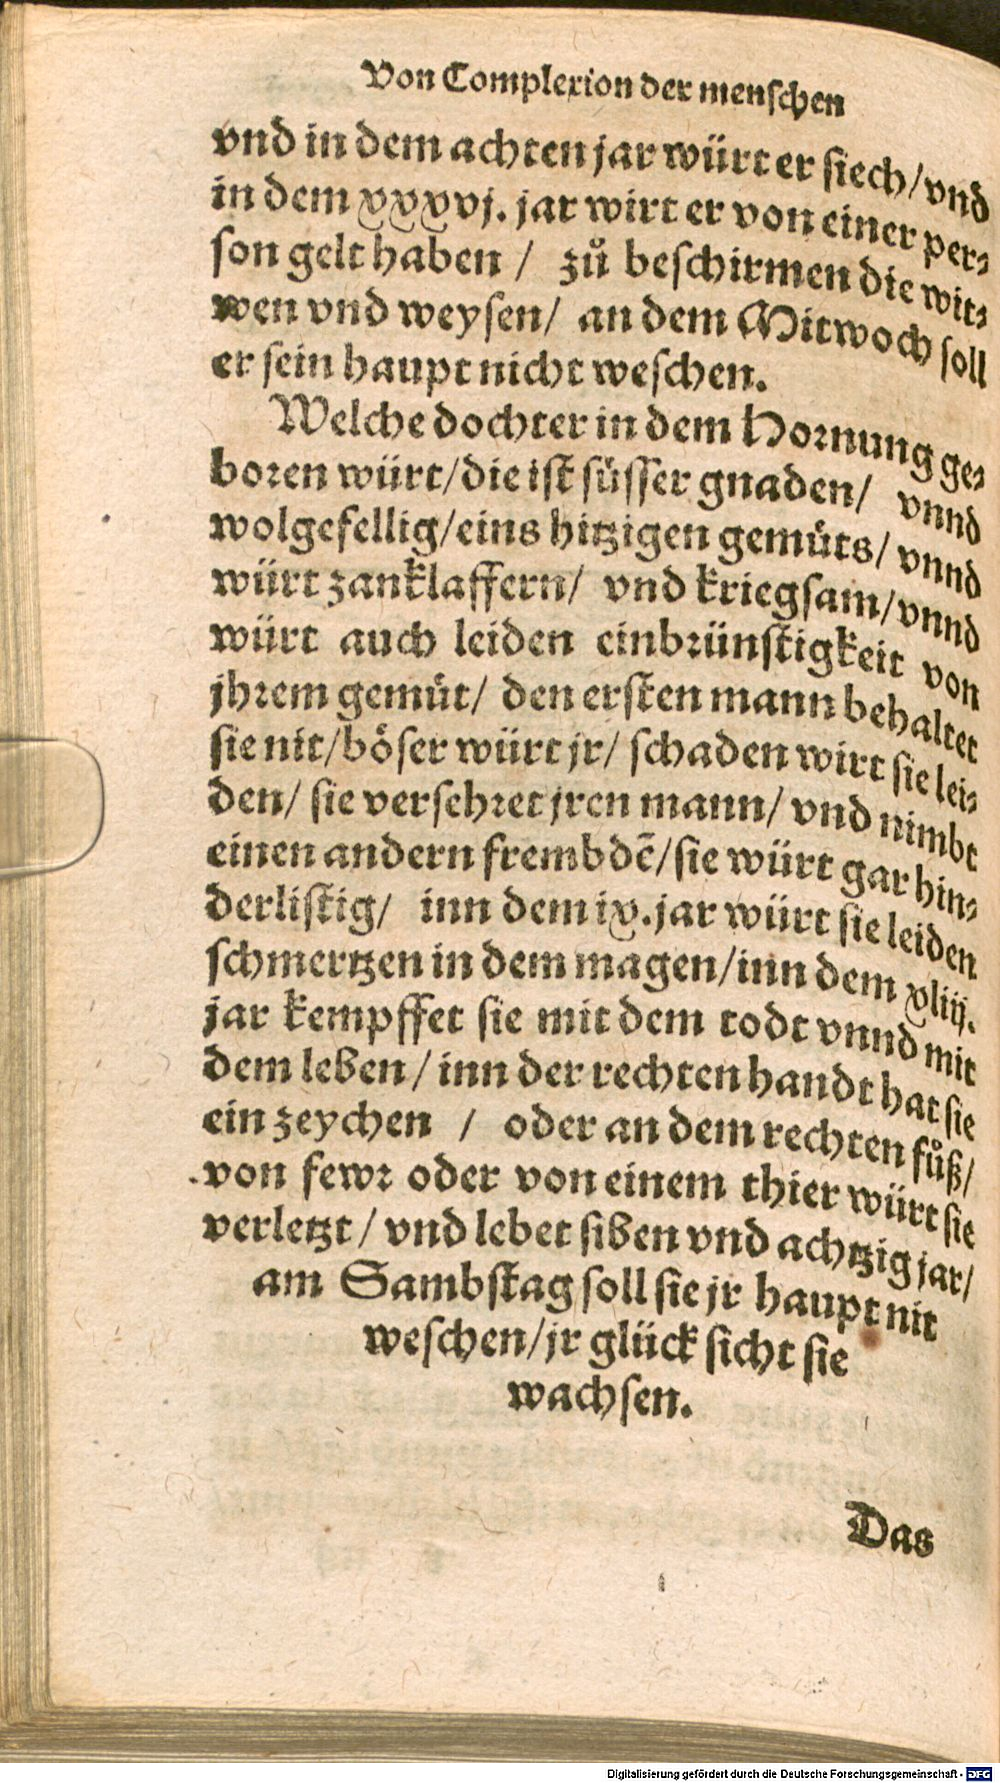 Von Complexion der menschen
vnd in dem achten jar würt er siech/vnd
in dem xxxvj. jar wirt er von einer per⸗
son gelt haben / zů beschirmen die wit⸗
wen vnd weysen/ an dem Mitwoch soll
er sein haupt nicht weschen.
Welche dochter in dem Hornung ge⸗
boren würt/die ist süsser gnaden/ vnnd
wolgefellig/eins hitzigen gemüts/ vnnd
würt zanklaffern/ vnd kriegsam/vnnd
würt auch leiden einbrünstigkeit von
jhrem gemüt/ den ersten mann behaltet
sie nit/böser würt jr/ schaden wirt sie lei⸗
den/ sie versehret jren mann/ vnd nimbt
einen andern frembdẽ/sie würt gar hin⸗
derlistig/ inn dem ix.jar würt sie leiden
schmertzen in dem magen/inn dem xliij.
jar kempffet sie mit dem todt vnnd mit
dem leben/ inn der rechten handt hat sie
ein zeychen / oder an dem rechten fůß/
von fewr oder von einem thier würt sie
verletzt/ vnd lebet siben vnd achtzig jar/
am Sambstag soll sie jr haupt nit
weschen/jr glück sicht sie
wachsen.
Das
Digitalisierung gefördert durch die Deutsche Forschungsgemeinschaft - DFG